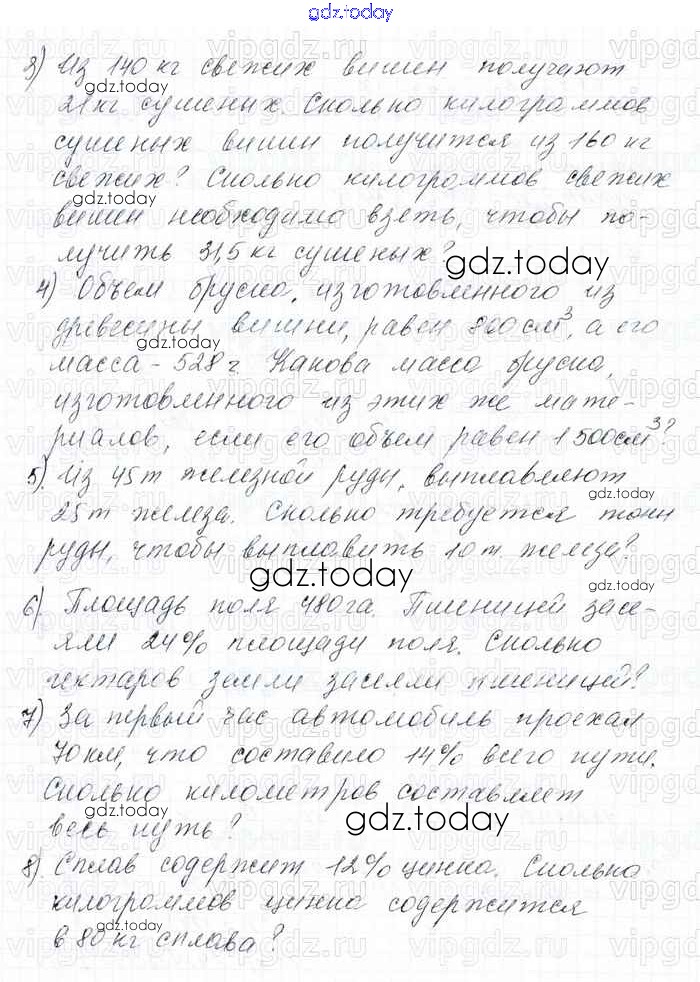 gdz.today
3) Из 140 кг свежих вишен получают
21 кг сушеных. Сколько килограммов
сушеных вишни получится из 160 кг
свежих? Сколько килограммов свежих
вишен необходимо взеть, чтобы по-
лучить 31,5 кг сушеных?
4) Объем бруска, изготовленного из
древесины вишни, равен 800 см³, а его
масса - 528 г. Какова масса бруска,
изготовленного из этих же мате-
риалов, если его объем равен 1 500 см³?
5) Из 45 т железной руды, выплавляют
25 т железа. Сколько требуется тонн
руды, чтобы выплавить 10 т железа?
6) Площадь поля 480 га. Пшеницей засе-
яли 24% площади поля. Сколько
гектаров земли засеяли пшеницей?
7) За первый час автомобиль проехал
70 км, что составило 14% всего пути.
Сколько километров составляет
весь путь?
8) Сплав содержит 12% цинка. Сколько
килограммов цинка содержится
в 80 кг сплава?